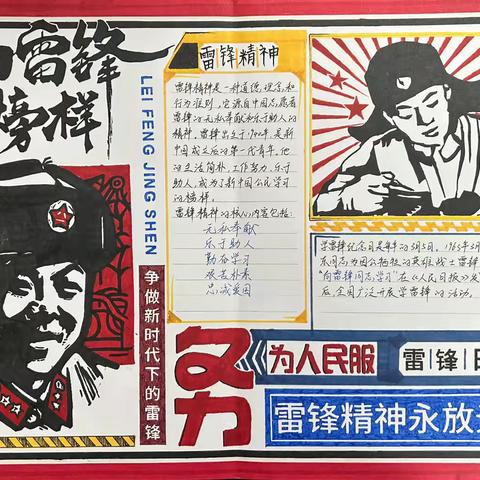 雷锋
榜样
LEI FENG JING SHEN
争做新时代下的雷锋
雷锋精神
雷锋精神是一种道德、观念和
行为准则，它源自中国志愿者
雷锋的无私奉献和乐于助人的
精神。雷锋出生于1940年，是新
中国成立后的第一代青年。他
的生活简朴，工作努力，乐于
助人，成为了新中国公民学习
的榜样。
雷锋精神的核心内容包括：
无私奉献
乐于助人
勤奋学习
艰苦朴素
忠诚爱国
学雷锋纪念日是每年的3月5日。1963年3月
东同志为因公牺牲的英雄战士雷锋
"向雷锋同志学习"在《人民日报》发
后，全国广泛开展学雷锋的活动。
努力
为人民服
雷锋日
雷锋精神永放